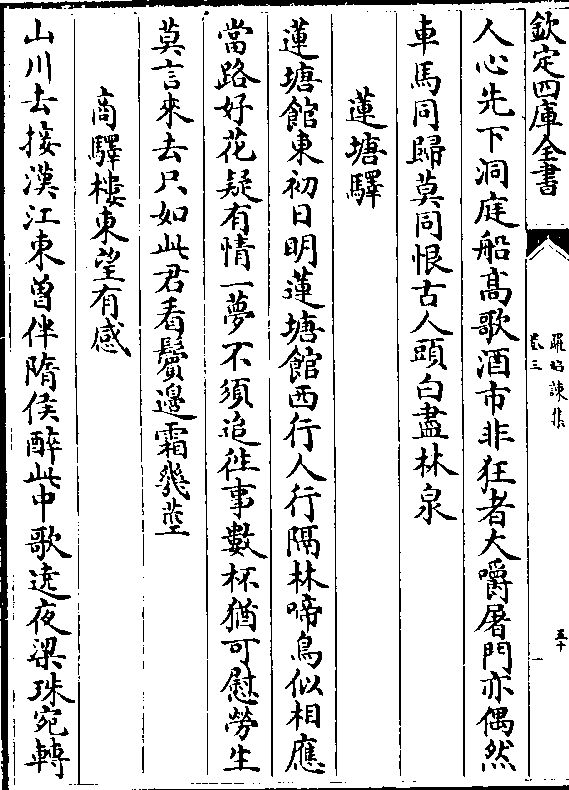 欽定四庫全書
羅昭諫集
卷三
五十
人心先下洞庭船髙歌酒市非狂者大嚼屠門亦偶然
車馬同歸莫同恨古人頭白盡林泉
蓮塘驛
蓮塘館東初日明蓮塘館西行人行隔林啼鳥似相應
當路好花疑有情一夢不須追徃事數杯猶可慰勞生
莫言來去只如此君看鬢邊霜幾莖
商驛樓東望有感
山川去接漢江東曽伴隋侯醉此中歌遶夜梁珠宛轉